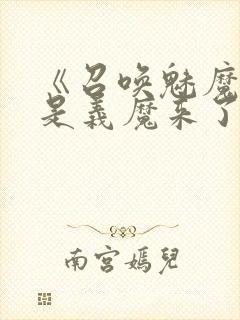 《召唤魅魔
是義魔来了
南宮嫣兒